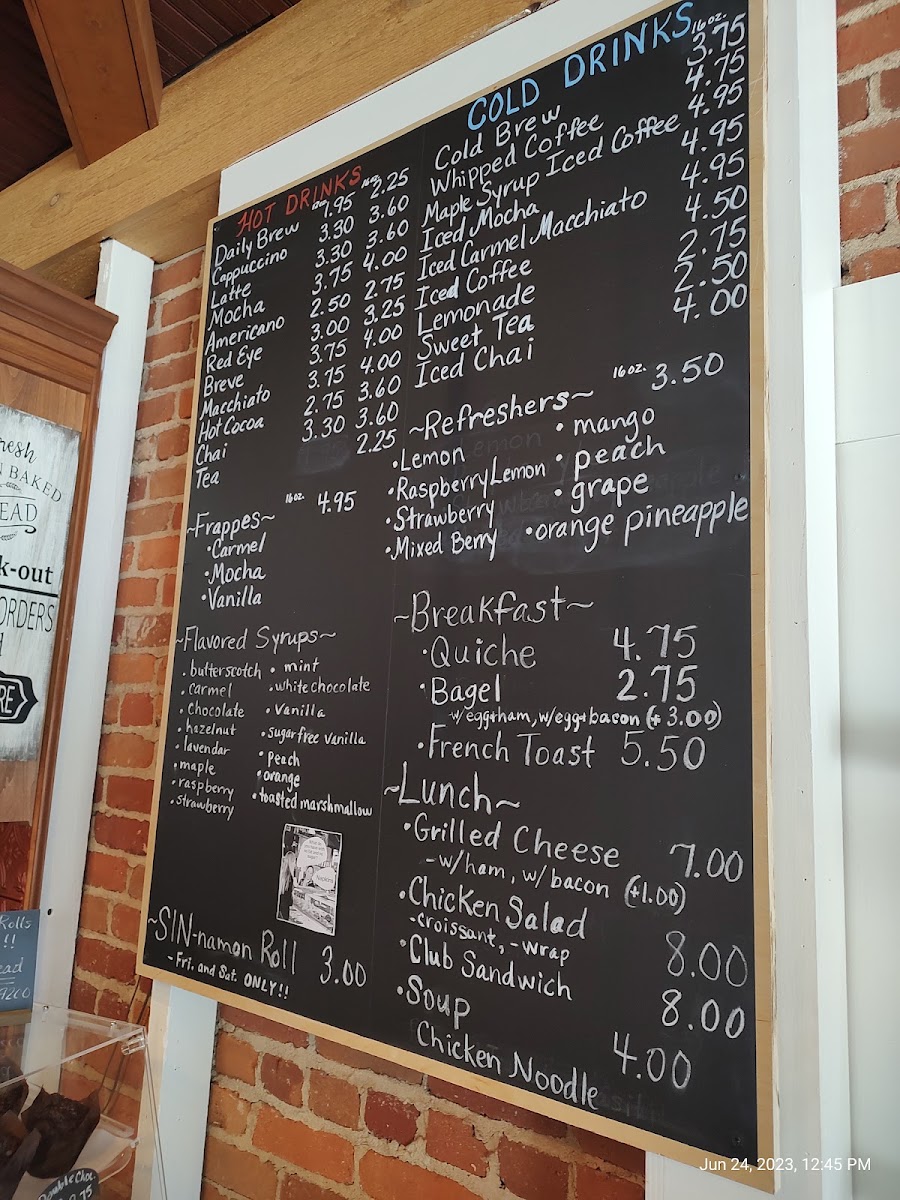 HOT DRINKS
16oz.
Daily Brew 1.95 2.25
Cappuccino 3.30 3.60
Latte 3.30 3.60
Mocha 3.75 4.00
Americano 2.50 2.75
Red Eye 3.00 3.25
Breve 3.75 4.00
Macchiato 3.75 4.00
Hot Cocoa 2.75 3.60
Chai 3.30 3.60
Tea 2.25
~Frappes~ 16oz. 4.95
•Carmel
•Mocha
•Vanilla
~Flavored Syrups~
•butterscotch
•carmel
•chocolate
•hazelnut
•lavendar
•maple
•raspberry
•strawberry
•mint
•white chocolate
•vanilla
•sugar free vanilla
•peach
•orange
•toasted marshmallow
~SIN-namon Roll 3.00
-Fri. and Sat. ONLY!!
COLD DRINKS 16oz.
Cold Brew 3.75
Whipped Coffee 4.75
Maple Syrup Iced Coffee 4.95
Iced Mocha 4.95
Iced Carmel Macchiato 4.95
Iced Coffee 4.50
Lemonade 2.75
Sweet Tea 2.50
Iced Chai 4.00
~Refreshers~ 16oz. 3.50
•Lemon
•Raspberry Lemon
•Strawberry
•Mixed Berry
•mango
•peach
•grape
•orange pineapple
~Breakfast~
•Quiche 4.75
•Bagel 2.75
-w/egg+ham, w/egg+bacon (+3.00)
•French Toast 5.50
~Lunch~
•Grilled Cheese 7.00
-w/ham, w/bacon (+1.00)
•Chicken Salad 8.00
-croissant, -wrap
•Club Sandwich 8.00
•Soup 4.00
Chicken Noodle
BAKED
k-out
ORDERS
Rolls
!!
Jun 24, 2023, 12:45 PM